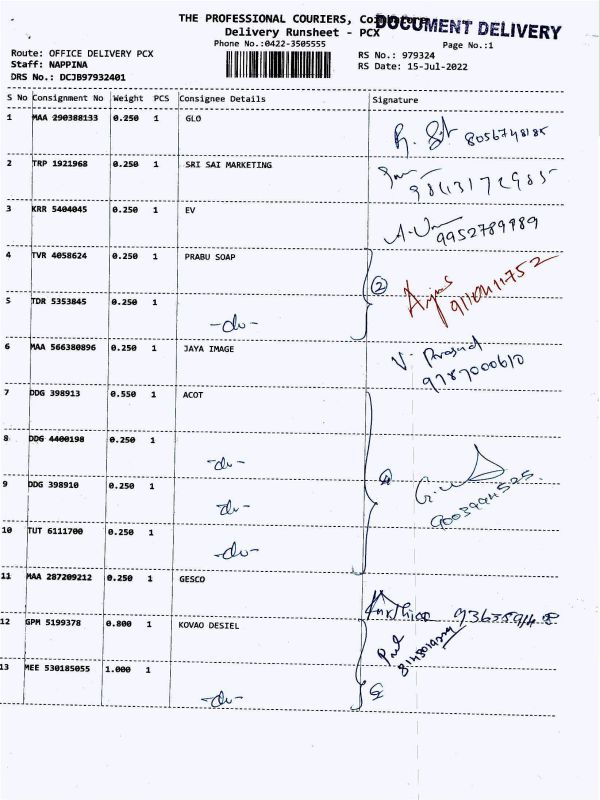 THE PROFESSIONAL COURIERS, Coimbatore
DOCUMENT DELIVERY
Delivery Runsheet - PCX
Phone No.:0422-3505555
Page No.:1
Route: OFFICE DELIVERY PCX
RS No.: 979324
Staff: NAPPINA
RS Date: 15-Jul-2022
DRS No.: DCJB97932401
S No Consignment No Weight PCS Consignee Details Signature
1 MAA 290388133 0.250 1 GLO
8056748185
2 TRP 1921968 0.250 1 SRI SAI MARKETING
9843172985
3 KRR 5404045 0.250 1 EV
9952789989
4 TVR 4058624 0.250 1 PRABU SOAP
2
5 TDR 5353845 0.250 1
-do-
6 MAA 566380896 0.250 1 JAYA IMAGE
V. Prasad
9787000610
7 DDG 398913 0.550 1 ACOT
8 DDG 4400198 0.250 1
-do-
9 DDG 398910 0.250 1
-do-
10 TUT 6111700 0.250 1
-do-
11 MAA 287209212 0.250 1 GESCO
12 GPM 5199378 0.800 1 KOVAO DESIEL
13 MEE 530185055 1.000 1
-do-